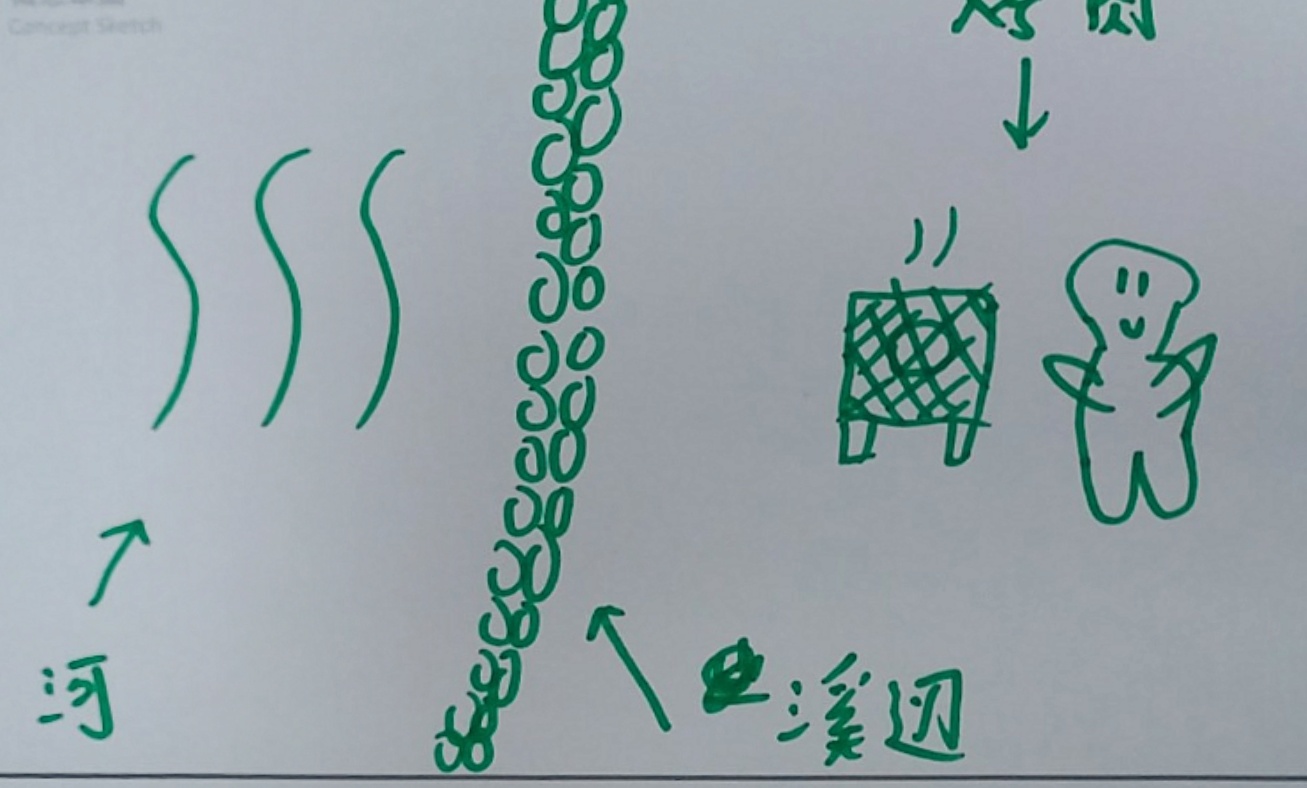 Concept Sketch
烤肉
河
溪边